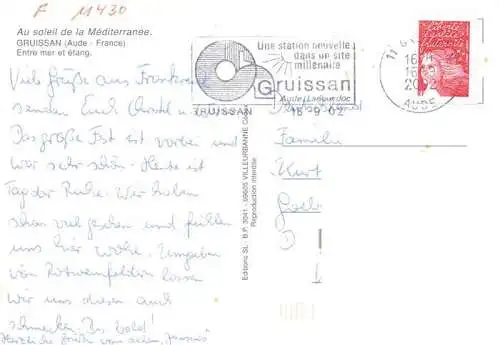 F 11430
Au soleil de la Méditerranée.
GRUISSAN (Aude - France)
Entre mer et étang.
Une station nouvelle
dans un site
millénaire
Gruissan
Aude / Languedoc
GRUISSAN 16-9-02
liberté
égalité
fraternité
AUDE
Viele Grüße aus Frankreich
senden Euch
Das große Fest ist vorbei und
war sehr schön. Heute ist
Tag der Ruhe. Wir haben
schon viel gesehen und fühlen
uns hier wohl. Umgeben
von Rotweinfeldern lassen
wir uns diesen auch
schmecken. Bis bald!
Herzliche Grüße von
Editions SL - B.P. 3041 - 69605 VILLEURBANNE
Reproduction interdite
Familie
Kurt
D